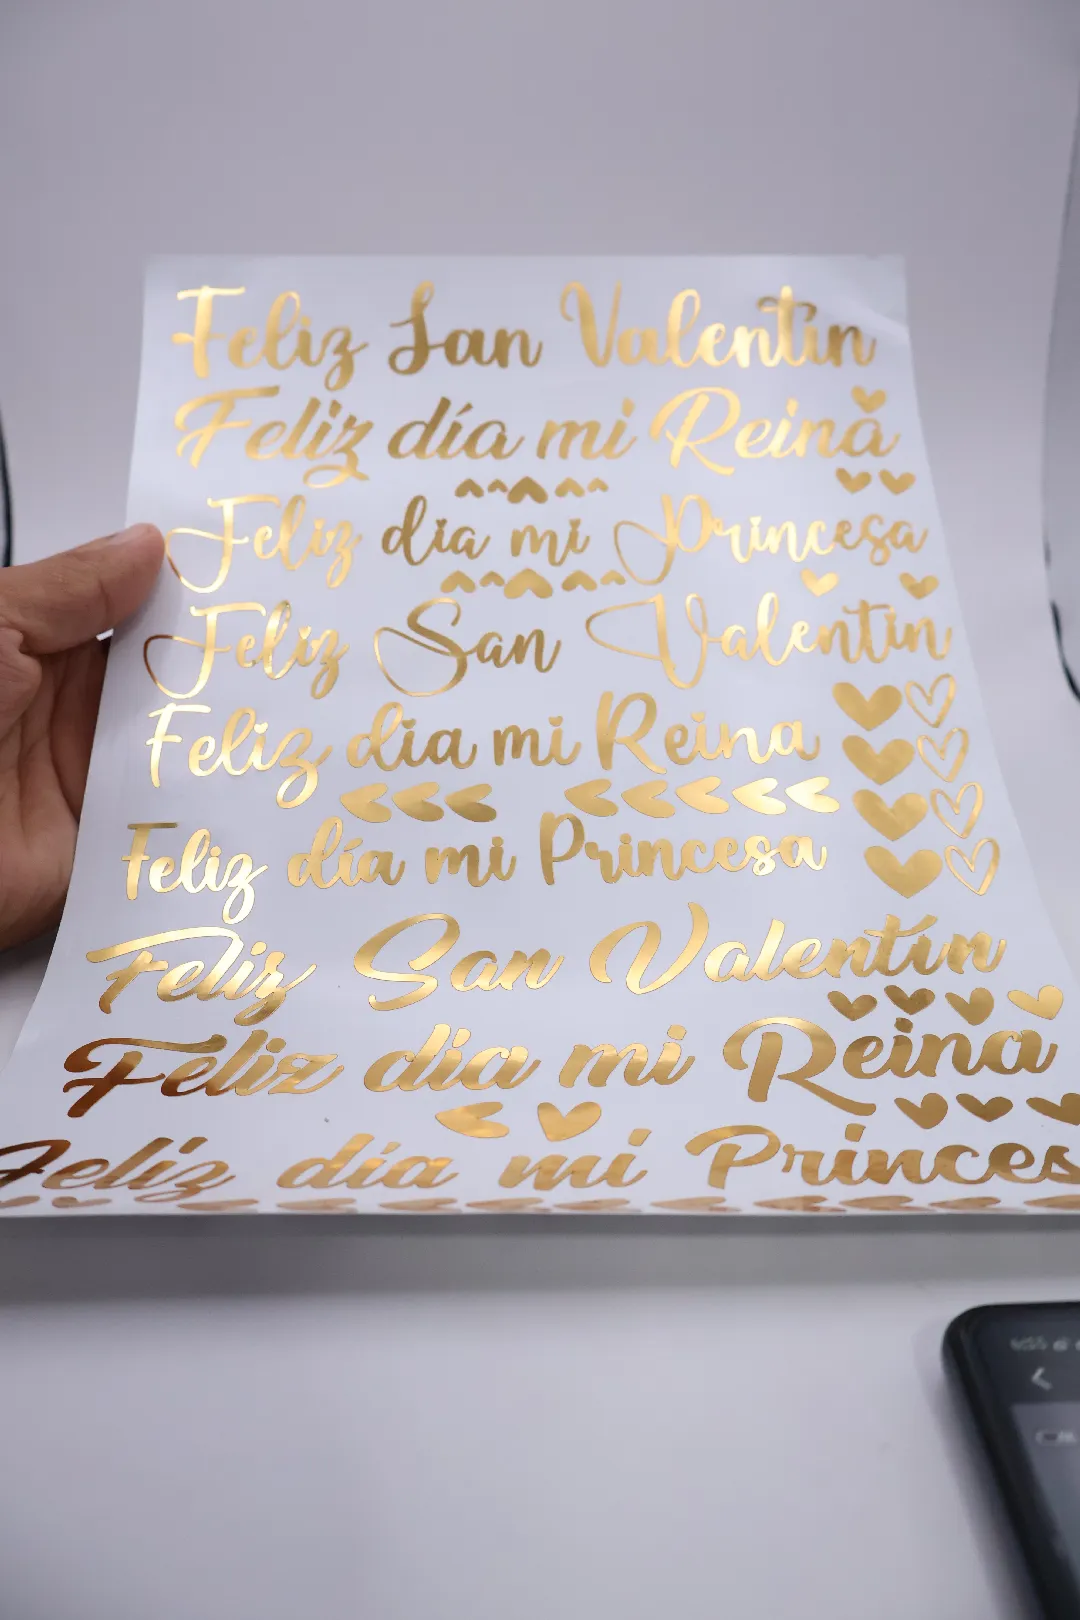 Feliz San Valentín
Feliz día mi Reina
Feliz dia mi Princesa
Feliz San Valentín
Feliz dia mi Reina
Feliz día mi Princesa
Feliz San Valentín
Feliz dia mi Reina
Feliz día mi Princes